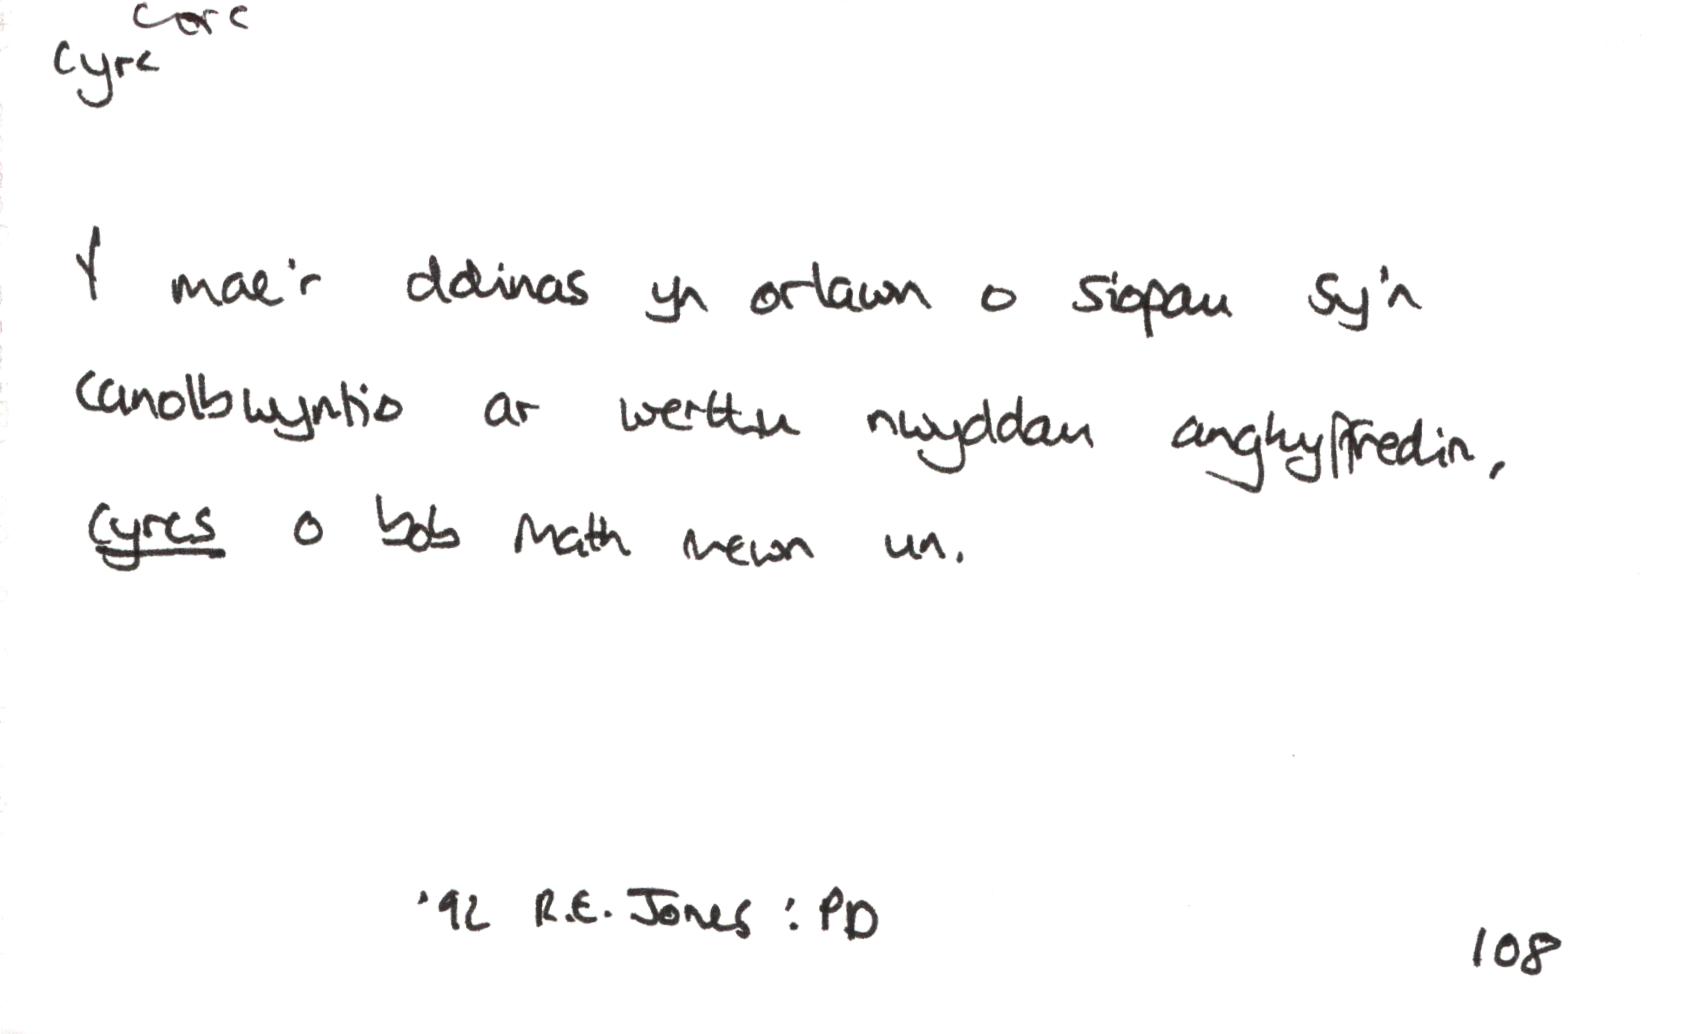 corc
cyrc
Y mae'r ddinas yn orlawn o siopau sy'n
canolbwyntio ar werthu nwyddau anghyffredin,
cyrcs o bob math mewn un.
'92 R.E. Jones : PD
108